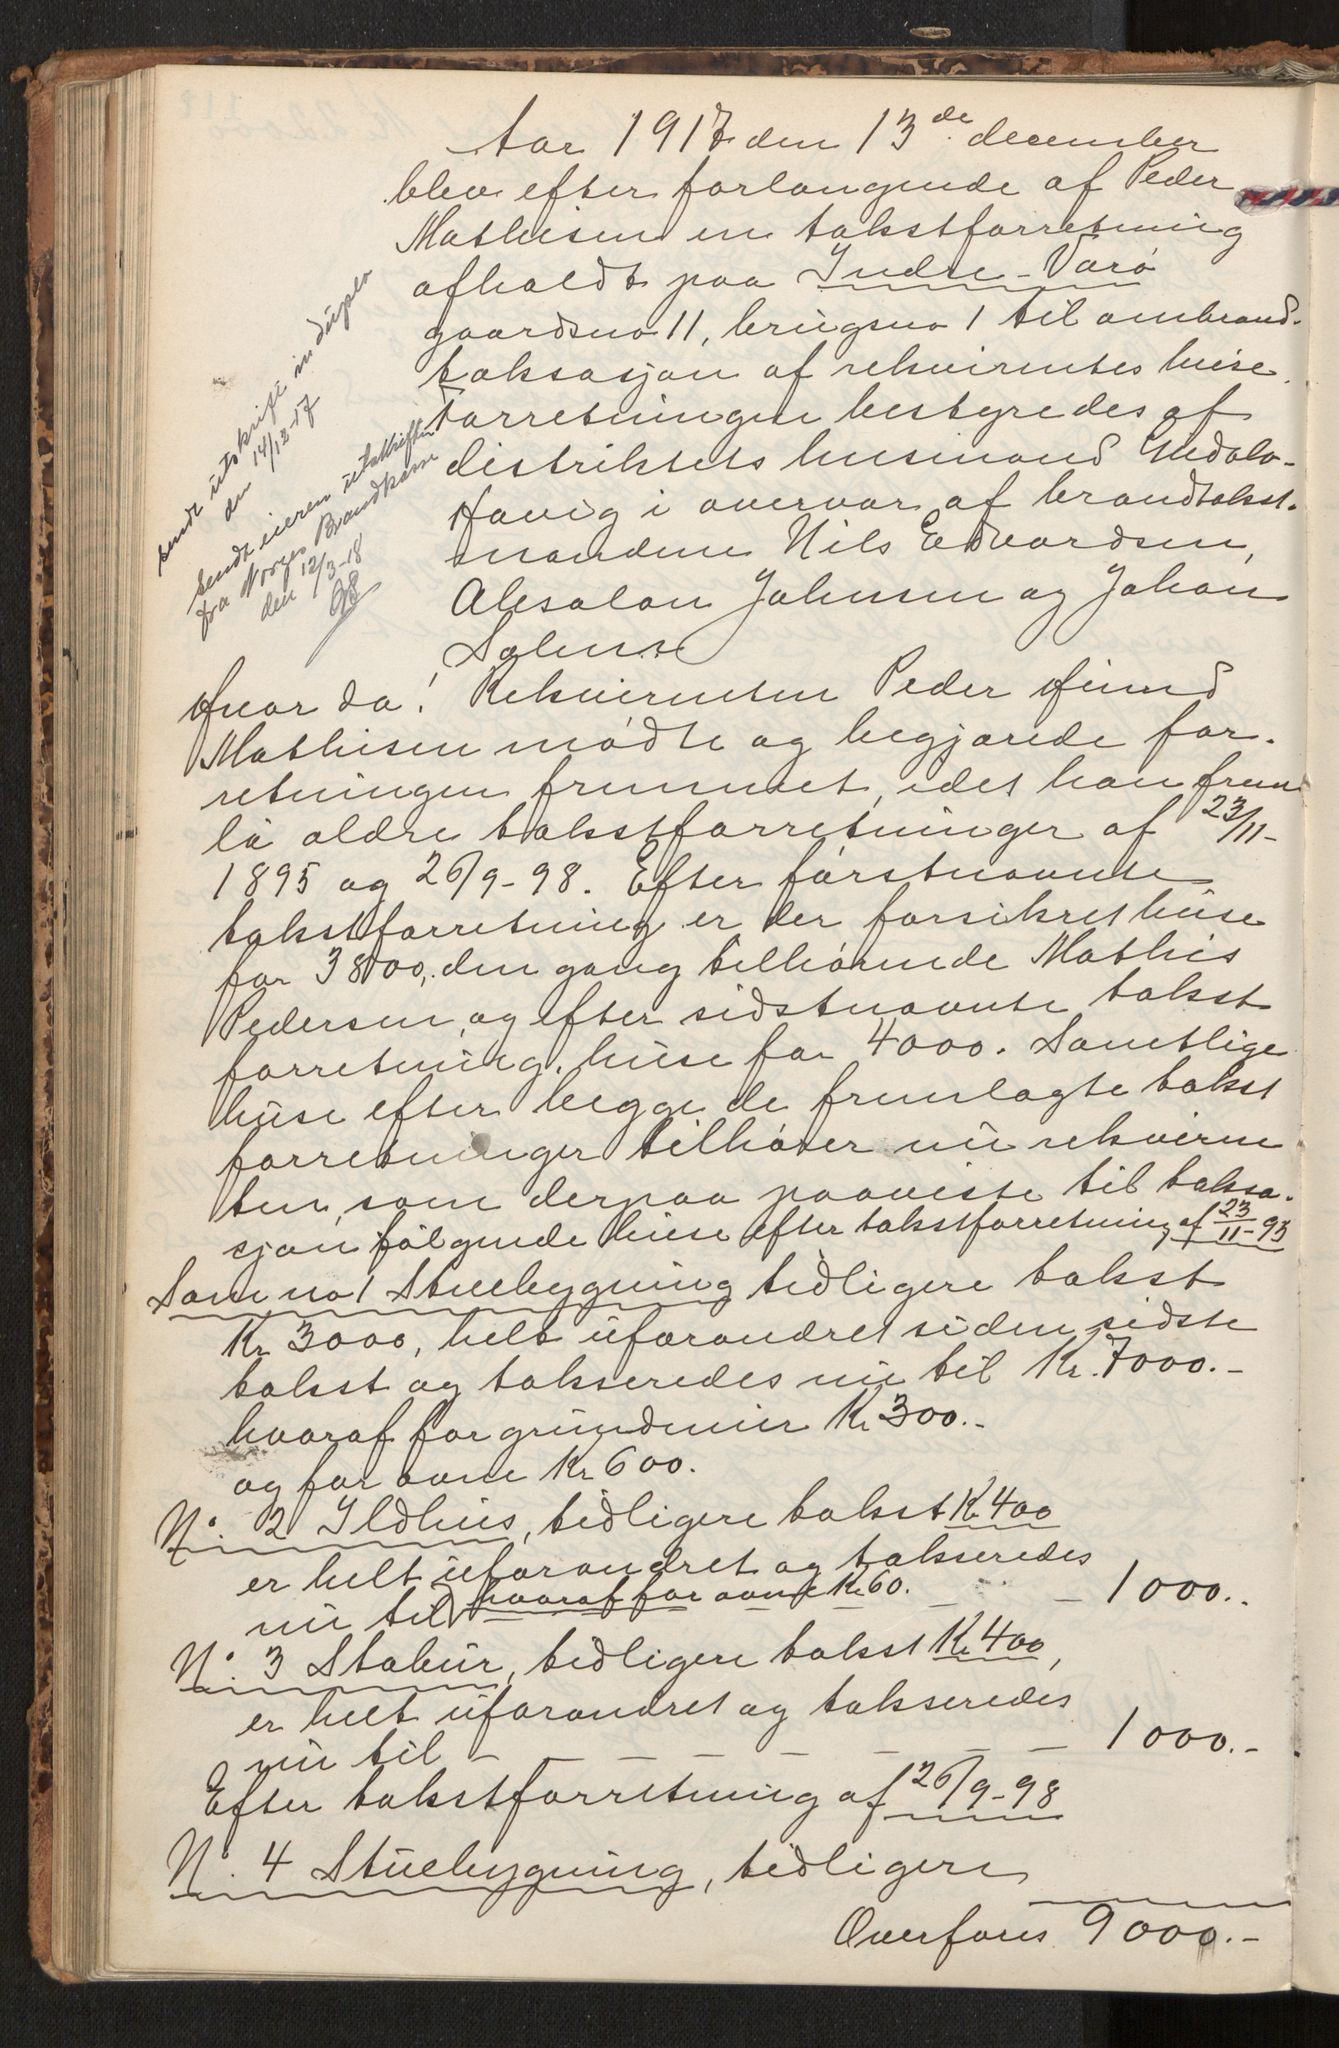 Aar 1917 den 13de december
blev efter forlangende af Peder
Mathisen en takstforretning
afholdt paa Indre-Varö
gaardsno 11, brugsno 1 til ombrand-
taksasjon af rekvirentes huse.
Forretningen bestyredes af
distriktets lensmand
Havig i overvær af brandtakst-
mændene Nils Edvardsen,
Absalon Johnsen og Johan
Salense
sendt utskrift in duplo
den 14/12-17
Sendt eieren utskriften
fra Norges Brandkasse
den 12/3-18
Hvor da! Rekvirenten Peder Eivind
Mathisen mödte og begjærede for-
retningen fremmet, idet han frem
la ældre takstforretninger af 23/11-
1895 og 26/9-98. Efter förstnævnte
takstforretning er der forsikret huse
for 3800, den gang tilhörende Mathis
Pedersen, og efter sidstnævnte takst
forretning, huse for 4000. Samtlige
huse efter begge de fremlagte takst
forretninger tilhörer nu rekviren
ten, som derpaa paaviste til taksa-
sjon fölgende huse efter takstforretning af 23/11-95
Som no 1 Stuebygning tidligere takst
Kr 3000, helt uforandret siden sidste
takst og takseredes nu til Kr. 7000.-
hvoraf for grundmur Kr 300.-
og for ovne Kr 600.
No. 2 Ildhus, tidligere takst Kr 400
er helt uforandret og takseredes
nu til hvoraf for ovne Kr 60. - - 1000.-
No. 3 Stabur, tidligere takst Kr 400,
er helt uforandret og takseredes
nu til - - - - - - - 1000.-
Efter takstforretning af 26/9-98
No. 4 Stuebygning, tidligere
Overföres 9000.-